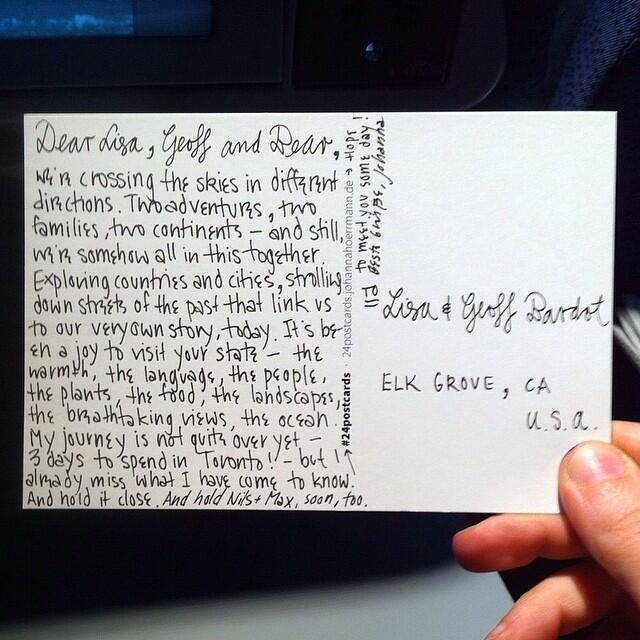 Dear Lisa, Geoff and Dear,
we're crossing the skies in different
directions. Two adventures, two
families, two continents – and still,
we're somehow all in this together.
Exploring countries and cities, strolling
down streets of the past that link us
to our very own story, today. It's be-
en a joy to visit your state – the
warmth, the language, the people,
the plants, the food, the landscapes,
the breathtaking views, the ocean.
My journey is not quite over yet –
3 days to spend in Toronto! – but I
already miss what I have come to know.
And hold it close. And hold Nils + Max, soon, too.
#24postcards · 24postcards.johannahoerrmann.de → Hope
to meet you some day!
Beste Grüße, Johanna
Lisa & Geoff Dardot
ELK GROVE, CA
U.S.A.